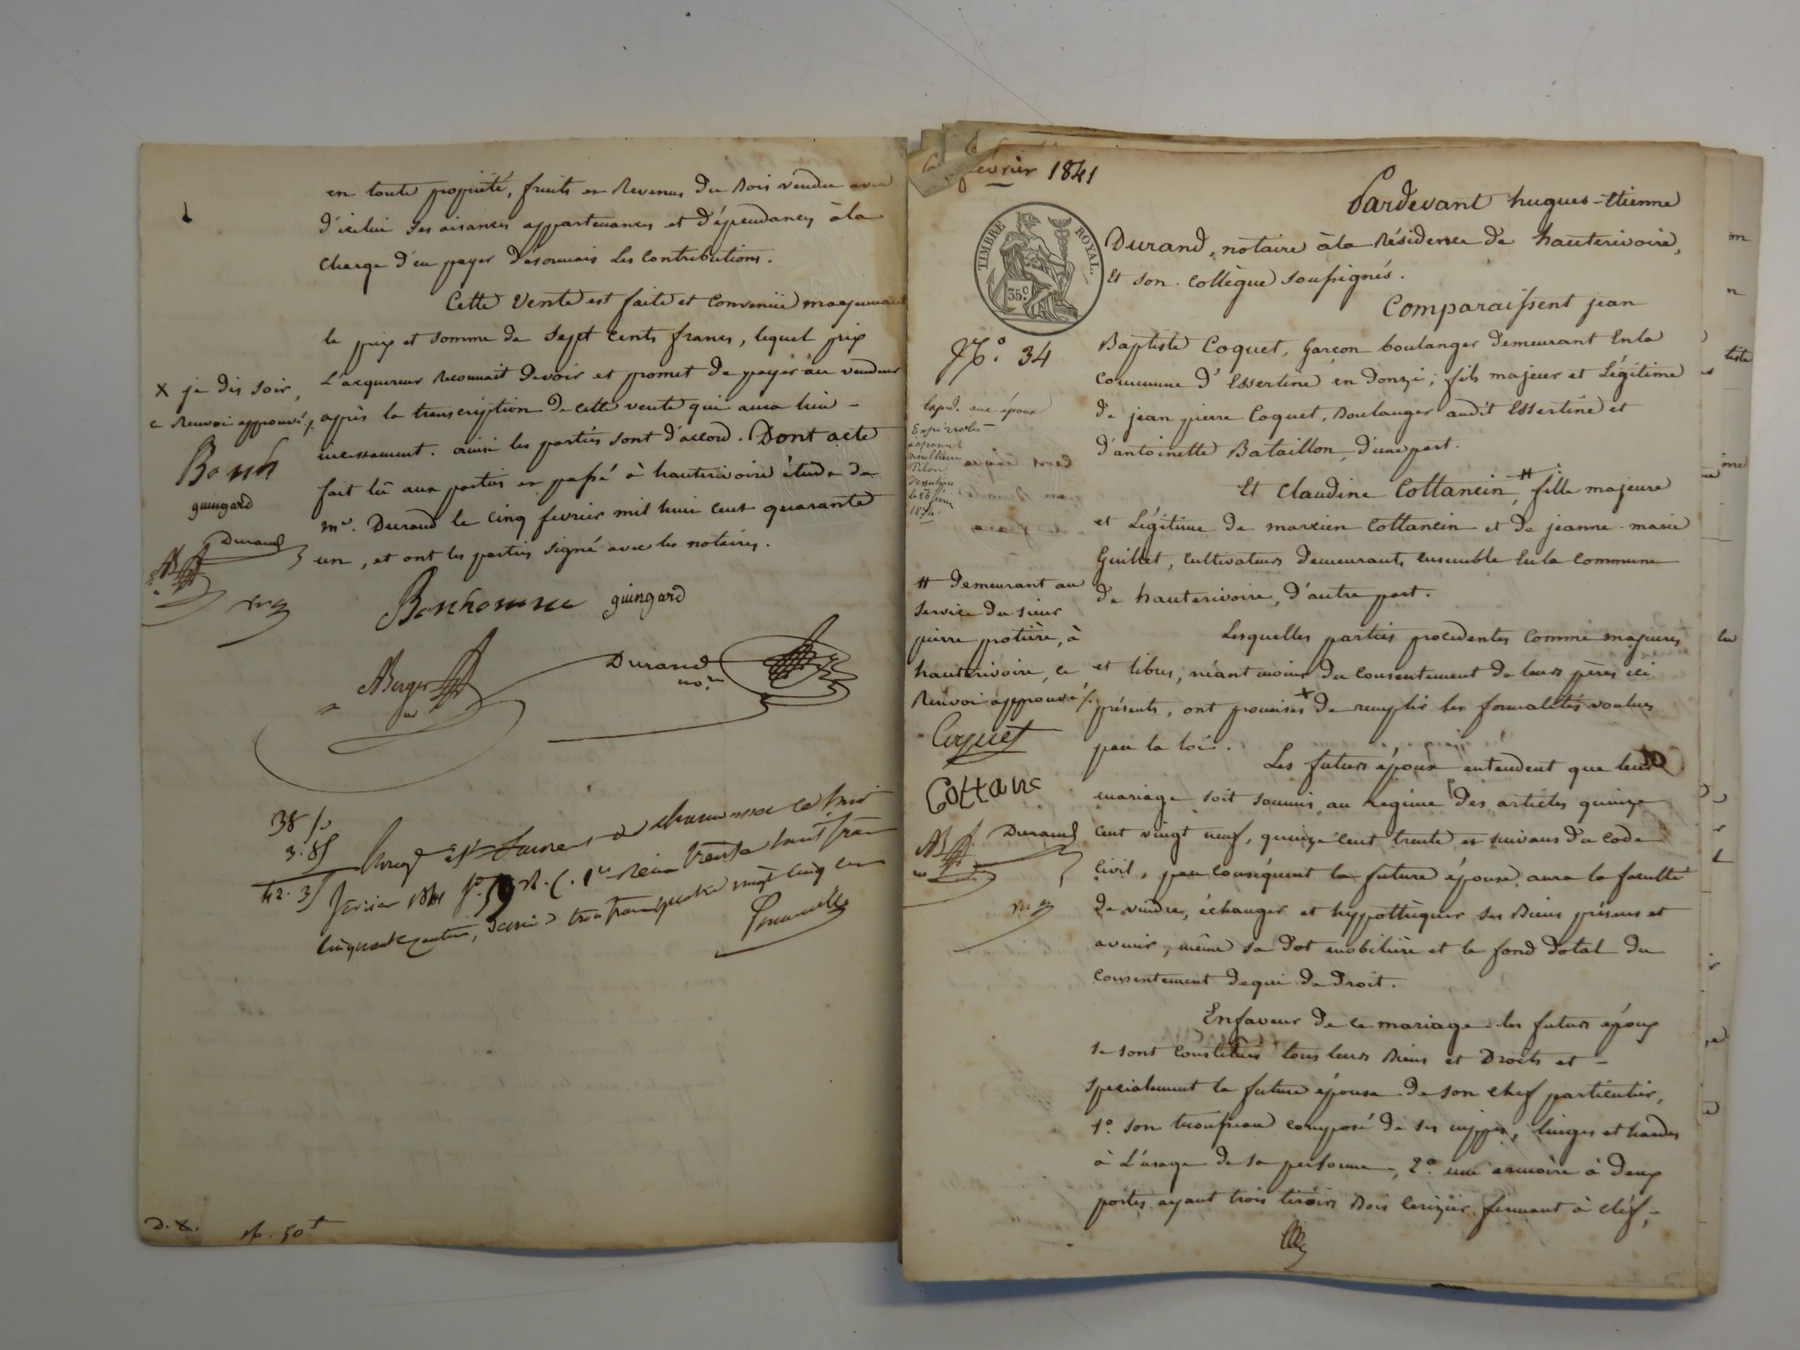 en toute propriété, fruits et Revenus du Bois vendu avec
d'icelui ses aisances appartenances et dépendances à la
charge d'en payer désormais Les Contributions.
Cette Vente est faite et Convenüe moyennant
le prix et somme de Sept Cents francs, lequel prix
L'acquereur Reconnait devoir et promet de payer au vendeur
après la transcription de cette vente qui aura lieu -
incessamment. ainsi les parties sont d'accord. Dont acte
fait lû aux parties et passé à hauterivoire étude de
me. Durand le cinq fevrier mil huit cent quarante
un, et ont les parties signé avec les notaires.
X je dis soir,
ce Renvoi approuvé
Bonh
guingard
Durand
Bonhomme guingard
Berger
Durand
no.re
38 50
3. 85
42. 35
février 1841 fo. 59
D. &.
50
février 1841
TIMBRE ROYAL.
35 c.
No. 34
Exped. aux époux
Pardevant hugues-Etienne
Durand, notaire à la Résidence de hauterivoire,
Et son Collègue Soussignés.
Comparaissent jean
Baptiste Coquet, Garçon boulanger demeurant En la
Commune d'Essertine en Donzi; fils majeur et Légitime
de jean pierre Coquet, Boulanger audit Essertine et
d'antoinette Bataillon, d'une part.
Et Claudine Cottancin #, fille majeure
et Légitime de marcien Cottancin et de jeanne marie
Guillet, Cultivateurs demeurants ensemble En la Commune
de hauterivoire, d'autre part.
# demeurant au
Service du sieur
pierre protière, à
hauterivoire, ce
Renvoi approuvé
Coquet
Cottanc
Durand
Lesquelles parties procedentes Comme majeures
et libres, néantmoins du Consentement de leurs pères ici
présents, ont promises X de remplir les formalités voulues
par la loi.
Les futurs époux entendent que leur
mariage soit soumis au regime des articles quinze
cent vingt neuf, quinze cent trente et suivans du Code
Civil, par Conséquent la future épouse aura la faculté
de vendre, échanger et hyppothèquer ses Biens présens et
avenir, même sa dot mobilière et le fond dotal du
Consentement de qui de Droit.
En faveur de ce mariage les futurs époux
se sont Constitués tous leurs Biens et Droits et -
spécialement la future épouse de son chef particulier,
1o. son trousseau composé de ses nippes, linges et hardes
à L'usage de sa personne, 2o. une armoire à deux
portes ayant trois tiroirs Bois Cerizier fermant à clef, -